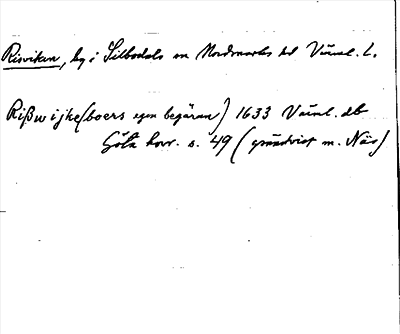 Risviken, by i Silbodals sn Nordmarks hd Värml. l.
Rißwijke (boers egen begäran) 1633 Värml. db
Göta hovr. s. 49 (gränstvist m. Näs)